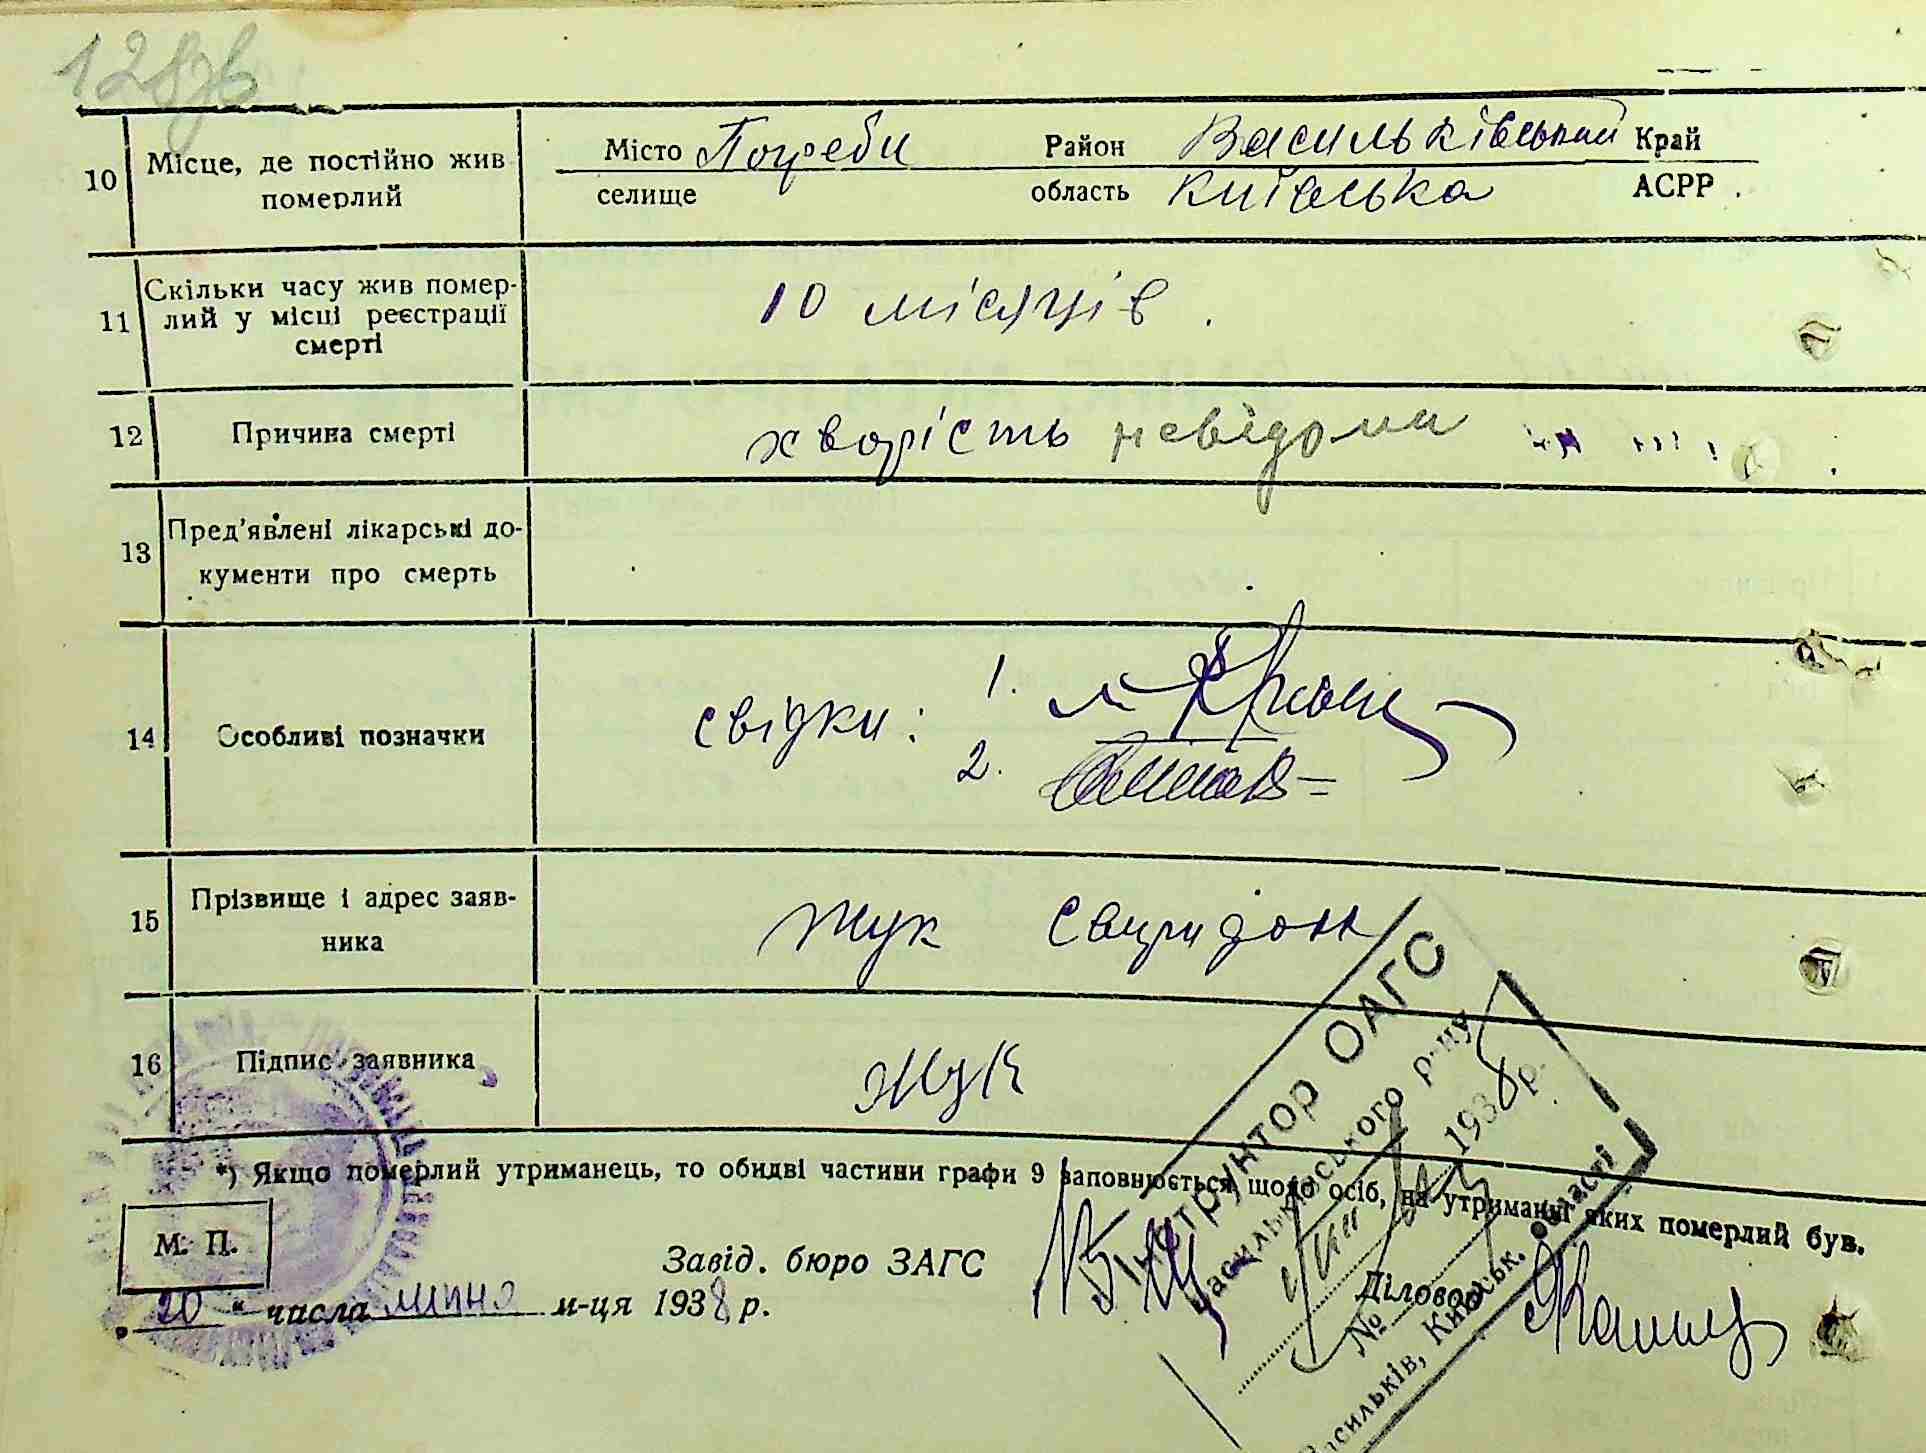 10 Місце, де постійно жив померлий
Місто Погреби Район Васильківський Край
селище область київська АСРР
11 Скільки часу жив помер-
лий у місці реєстрації
смерті
10 місяців.
12 Причина смерті хворість невідома
13 Пред'явлені лікарські до-
кументи про смерть
14 Особливі позначки свідки: 1.
2.
15 Прізвище і адрес заяв-
ника
Жук Свиридон
16 Підпис заявника Жук
*) Якщо померлий утриманець, то обидві частини графи 9 заповнюється щодо осіб, на утриманні яких померлий був.
М. П.
Завід. бюро ЗАГС Діловод
„20" числа липня м-ця 1938 р.
Інструктор ОАГС
Васильківського р-ну
1938 р.
№
Васильків, Київськ. області